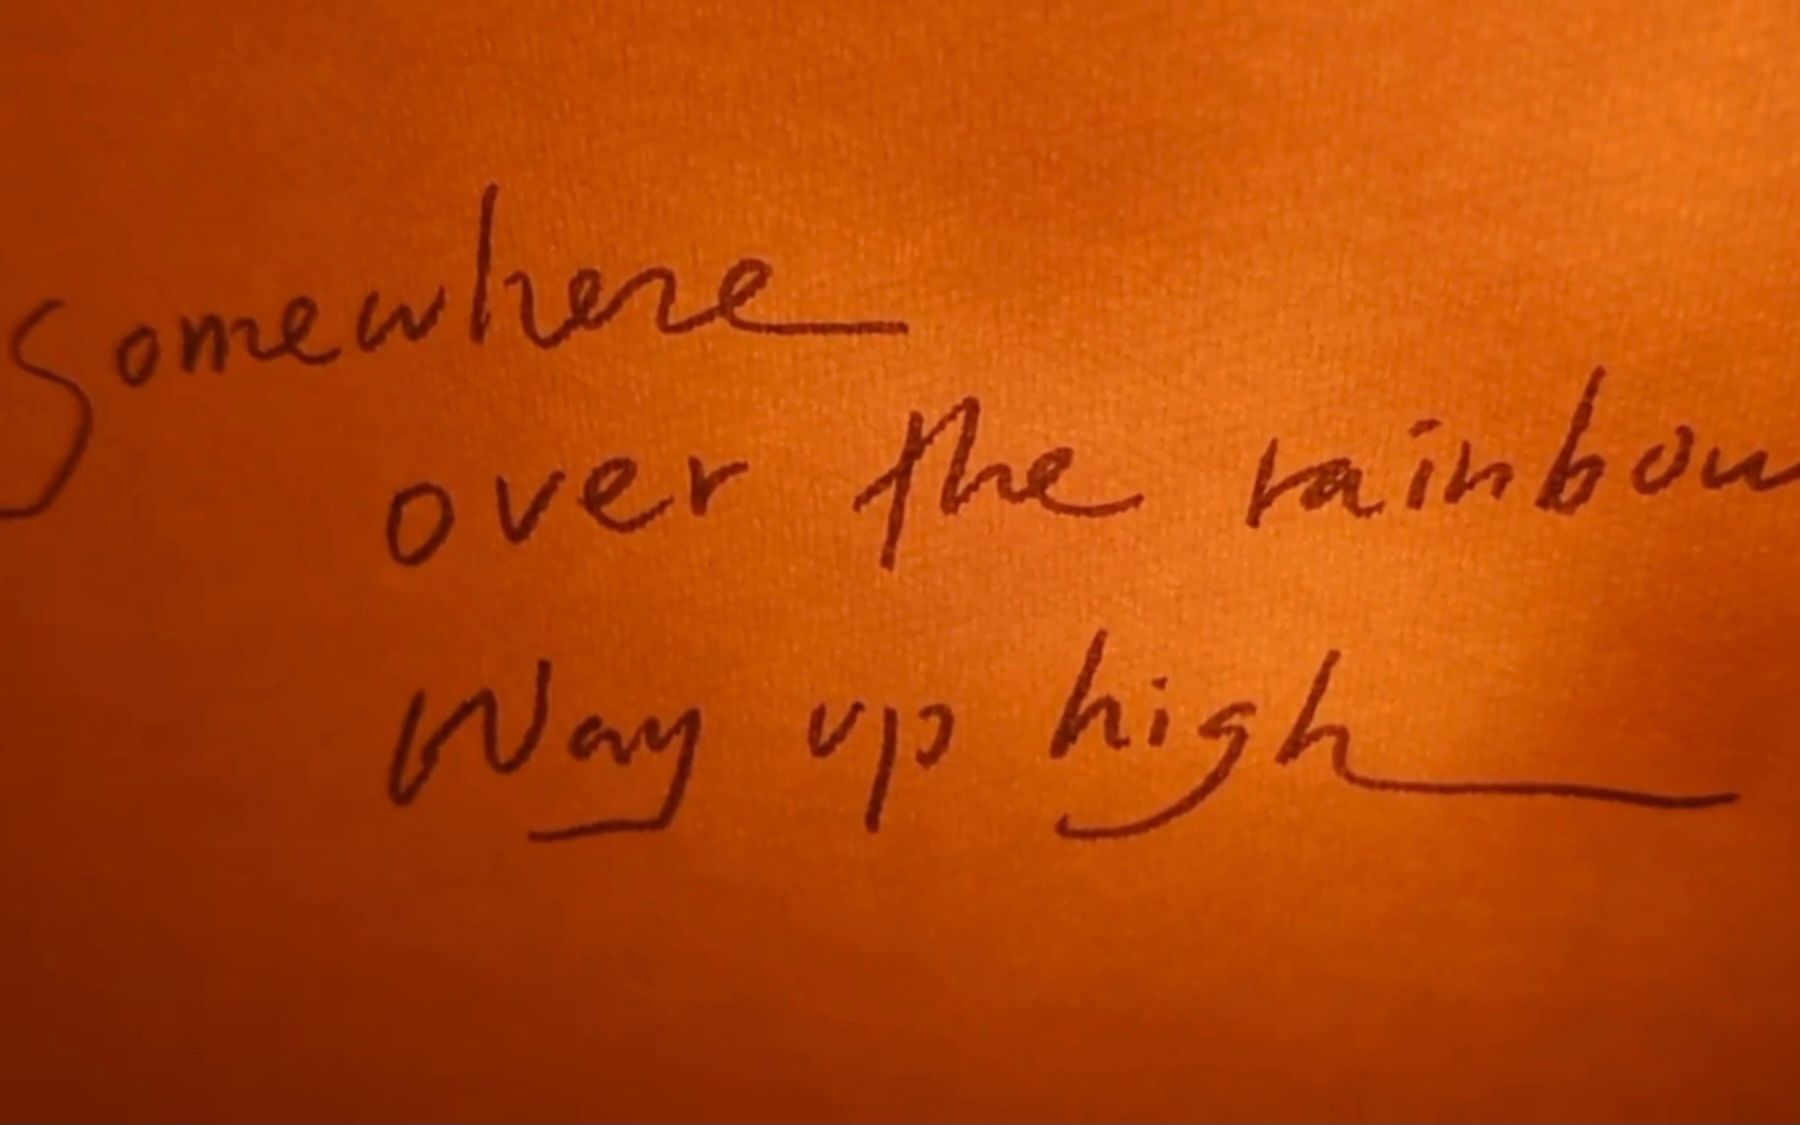 Somewhere
over the rainbow
Way up high